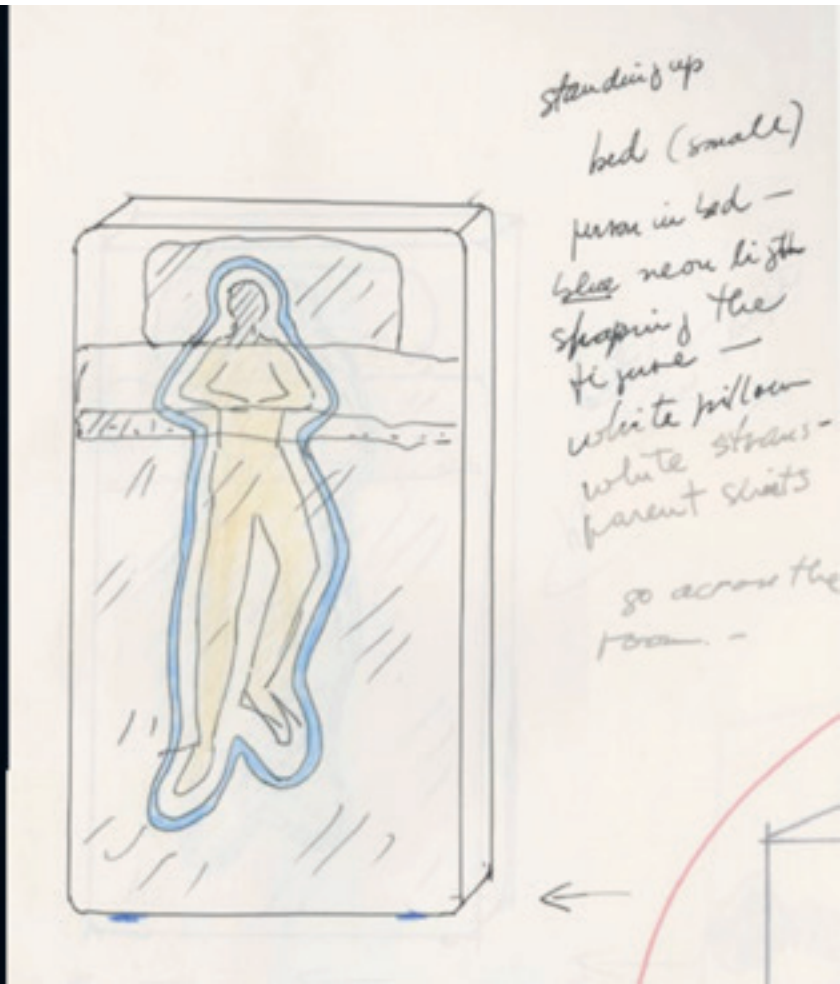 standing up
bed (small)
person in bed —
blue neon light
shaping the
figure —
white pillow
white trans-
parent sheets
go across the
room. -